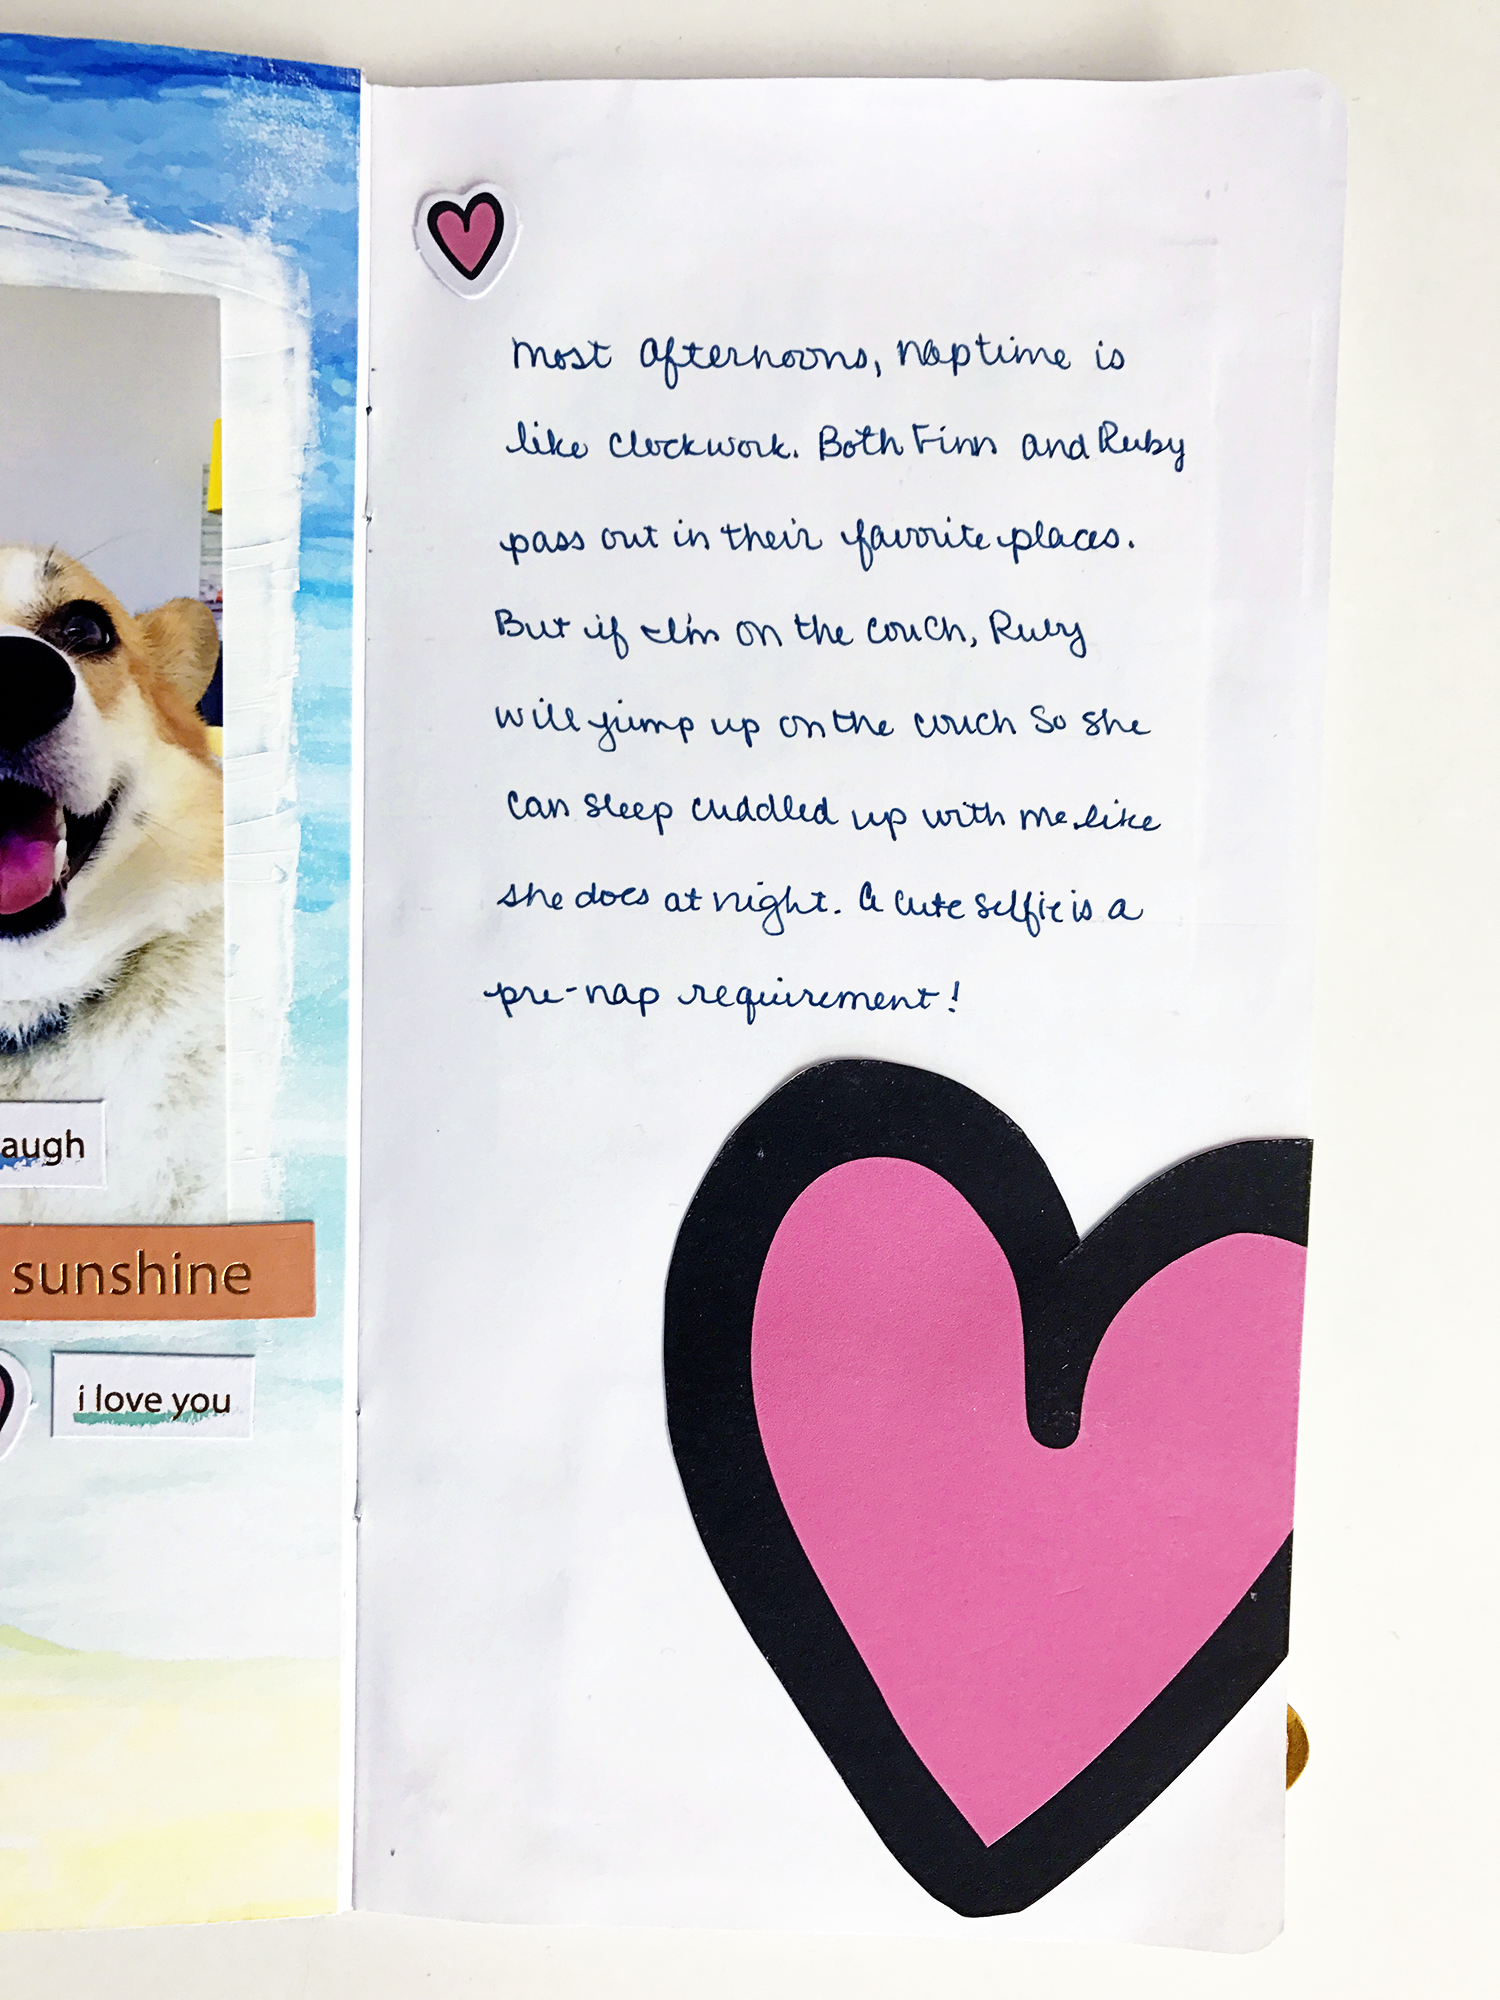 augh
sunshine
i love you
most afternoons, naptime is
like clockwork. Both Finn and Ruby
pass out in their favorite places.
But if I'm on the couch, Ruby
will jump up on the couch so she
can sleep cuddled up with me like
she does at night. A cute selfie is a
pre-nap requirement!